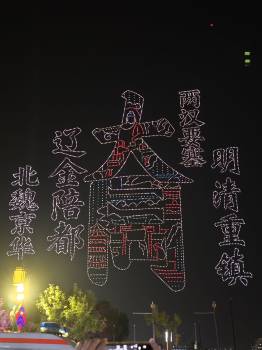 北魏京华
辽金陪都
大同
两汉要塞
明清重镇